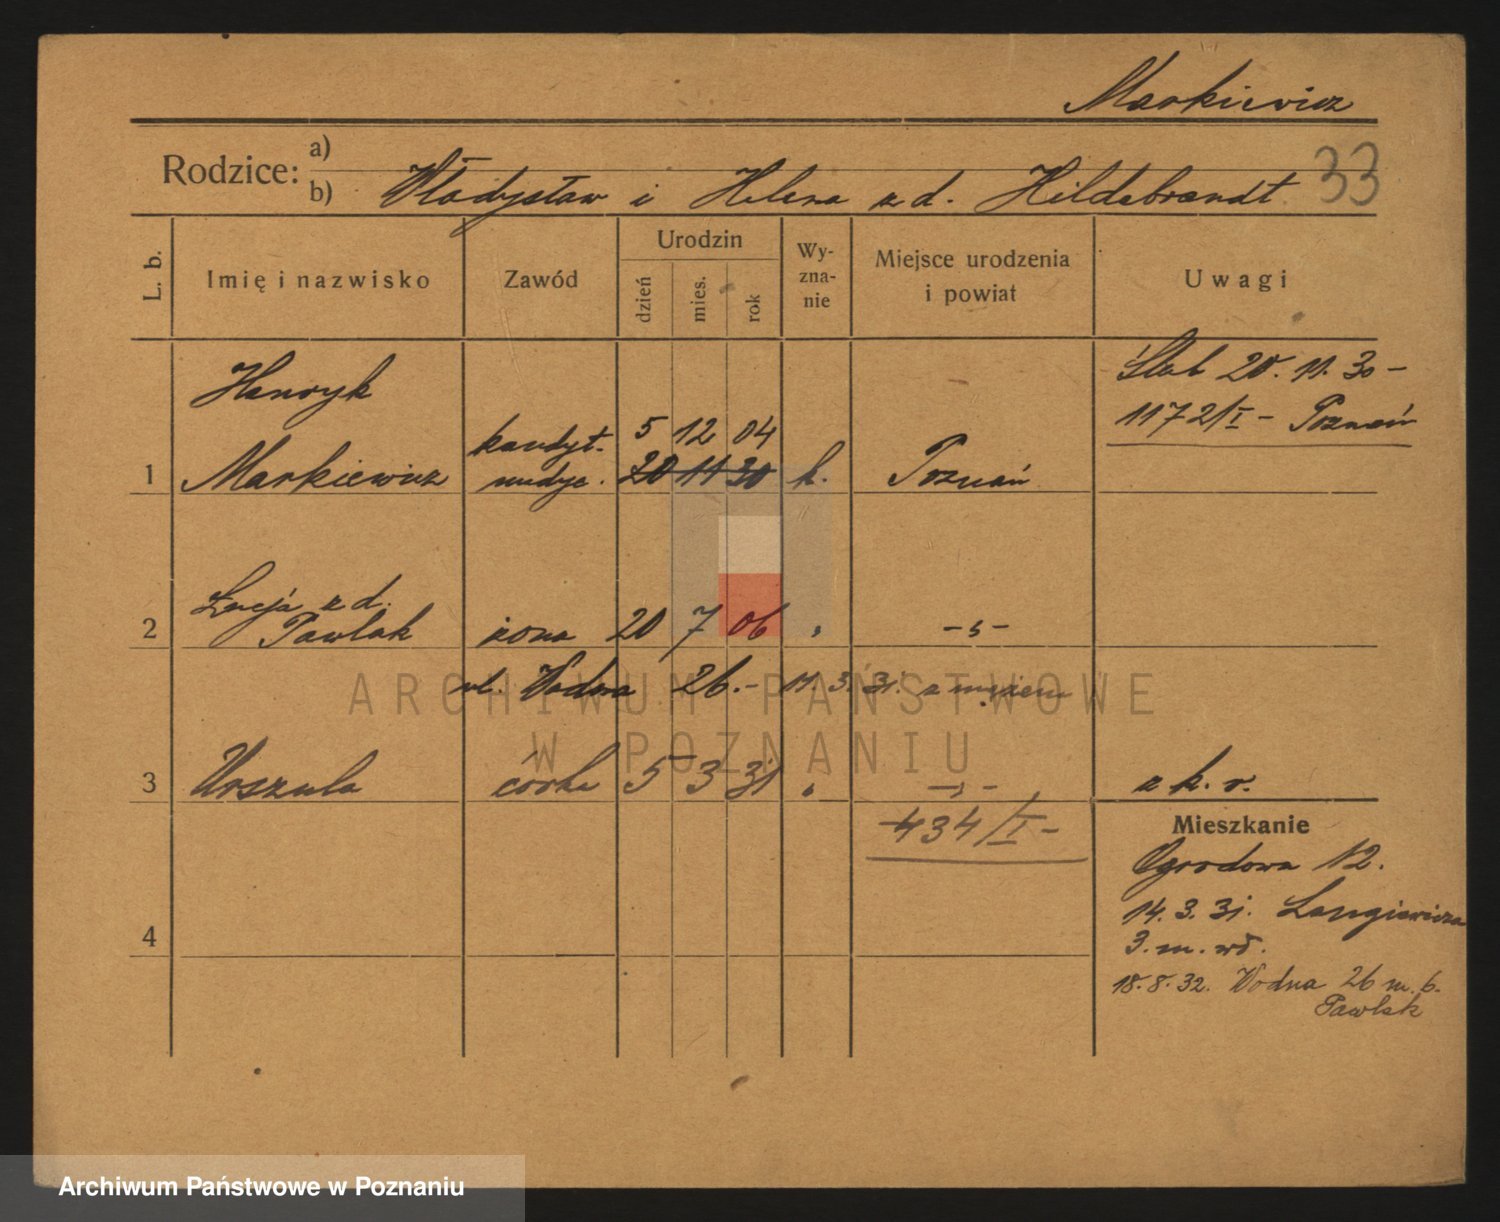 Markiewicz
Rodzice: a)
b) Władysław i Helena z d. Hildebrandt 33
L. b. Imię i nazwisko Zawód Urodzin dzień mies. rok Wy-zna-nie Miejsce urodzenia i powiat Uwagi
Henryk Ślub 20. 11. 30 –
kandyt. 5 12 04 1172/I – Poznań
1 Markiewicz medyc. 20 11 30 k. Poznań
Łucja z d.
2 Pawlak żona 20 7 06 „ – „ –
ul. Wodna 26. – 11. 3. 31. z mężem
ARCHIWUM PAŃSTWOWE
W POZNANIU
3 Urszula córka 5 3 31 „ – „ – z k. r.
434/I –
Mieszkanie
Ogrodowa 12.
14. 3. 31. Langiewicza
4 3. m. wł.
18. 8. 32. Wodna 26 m. 6.
Pawlak
Archiwum Państwowe w Poznaniu